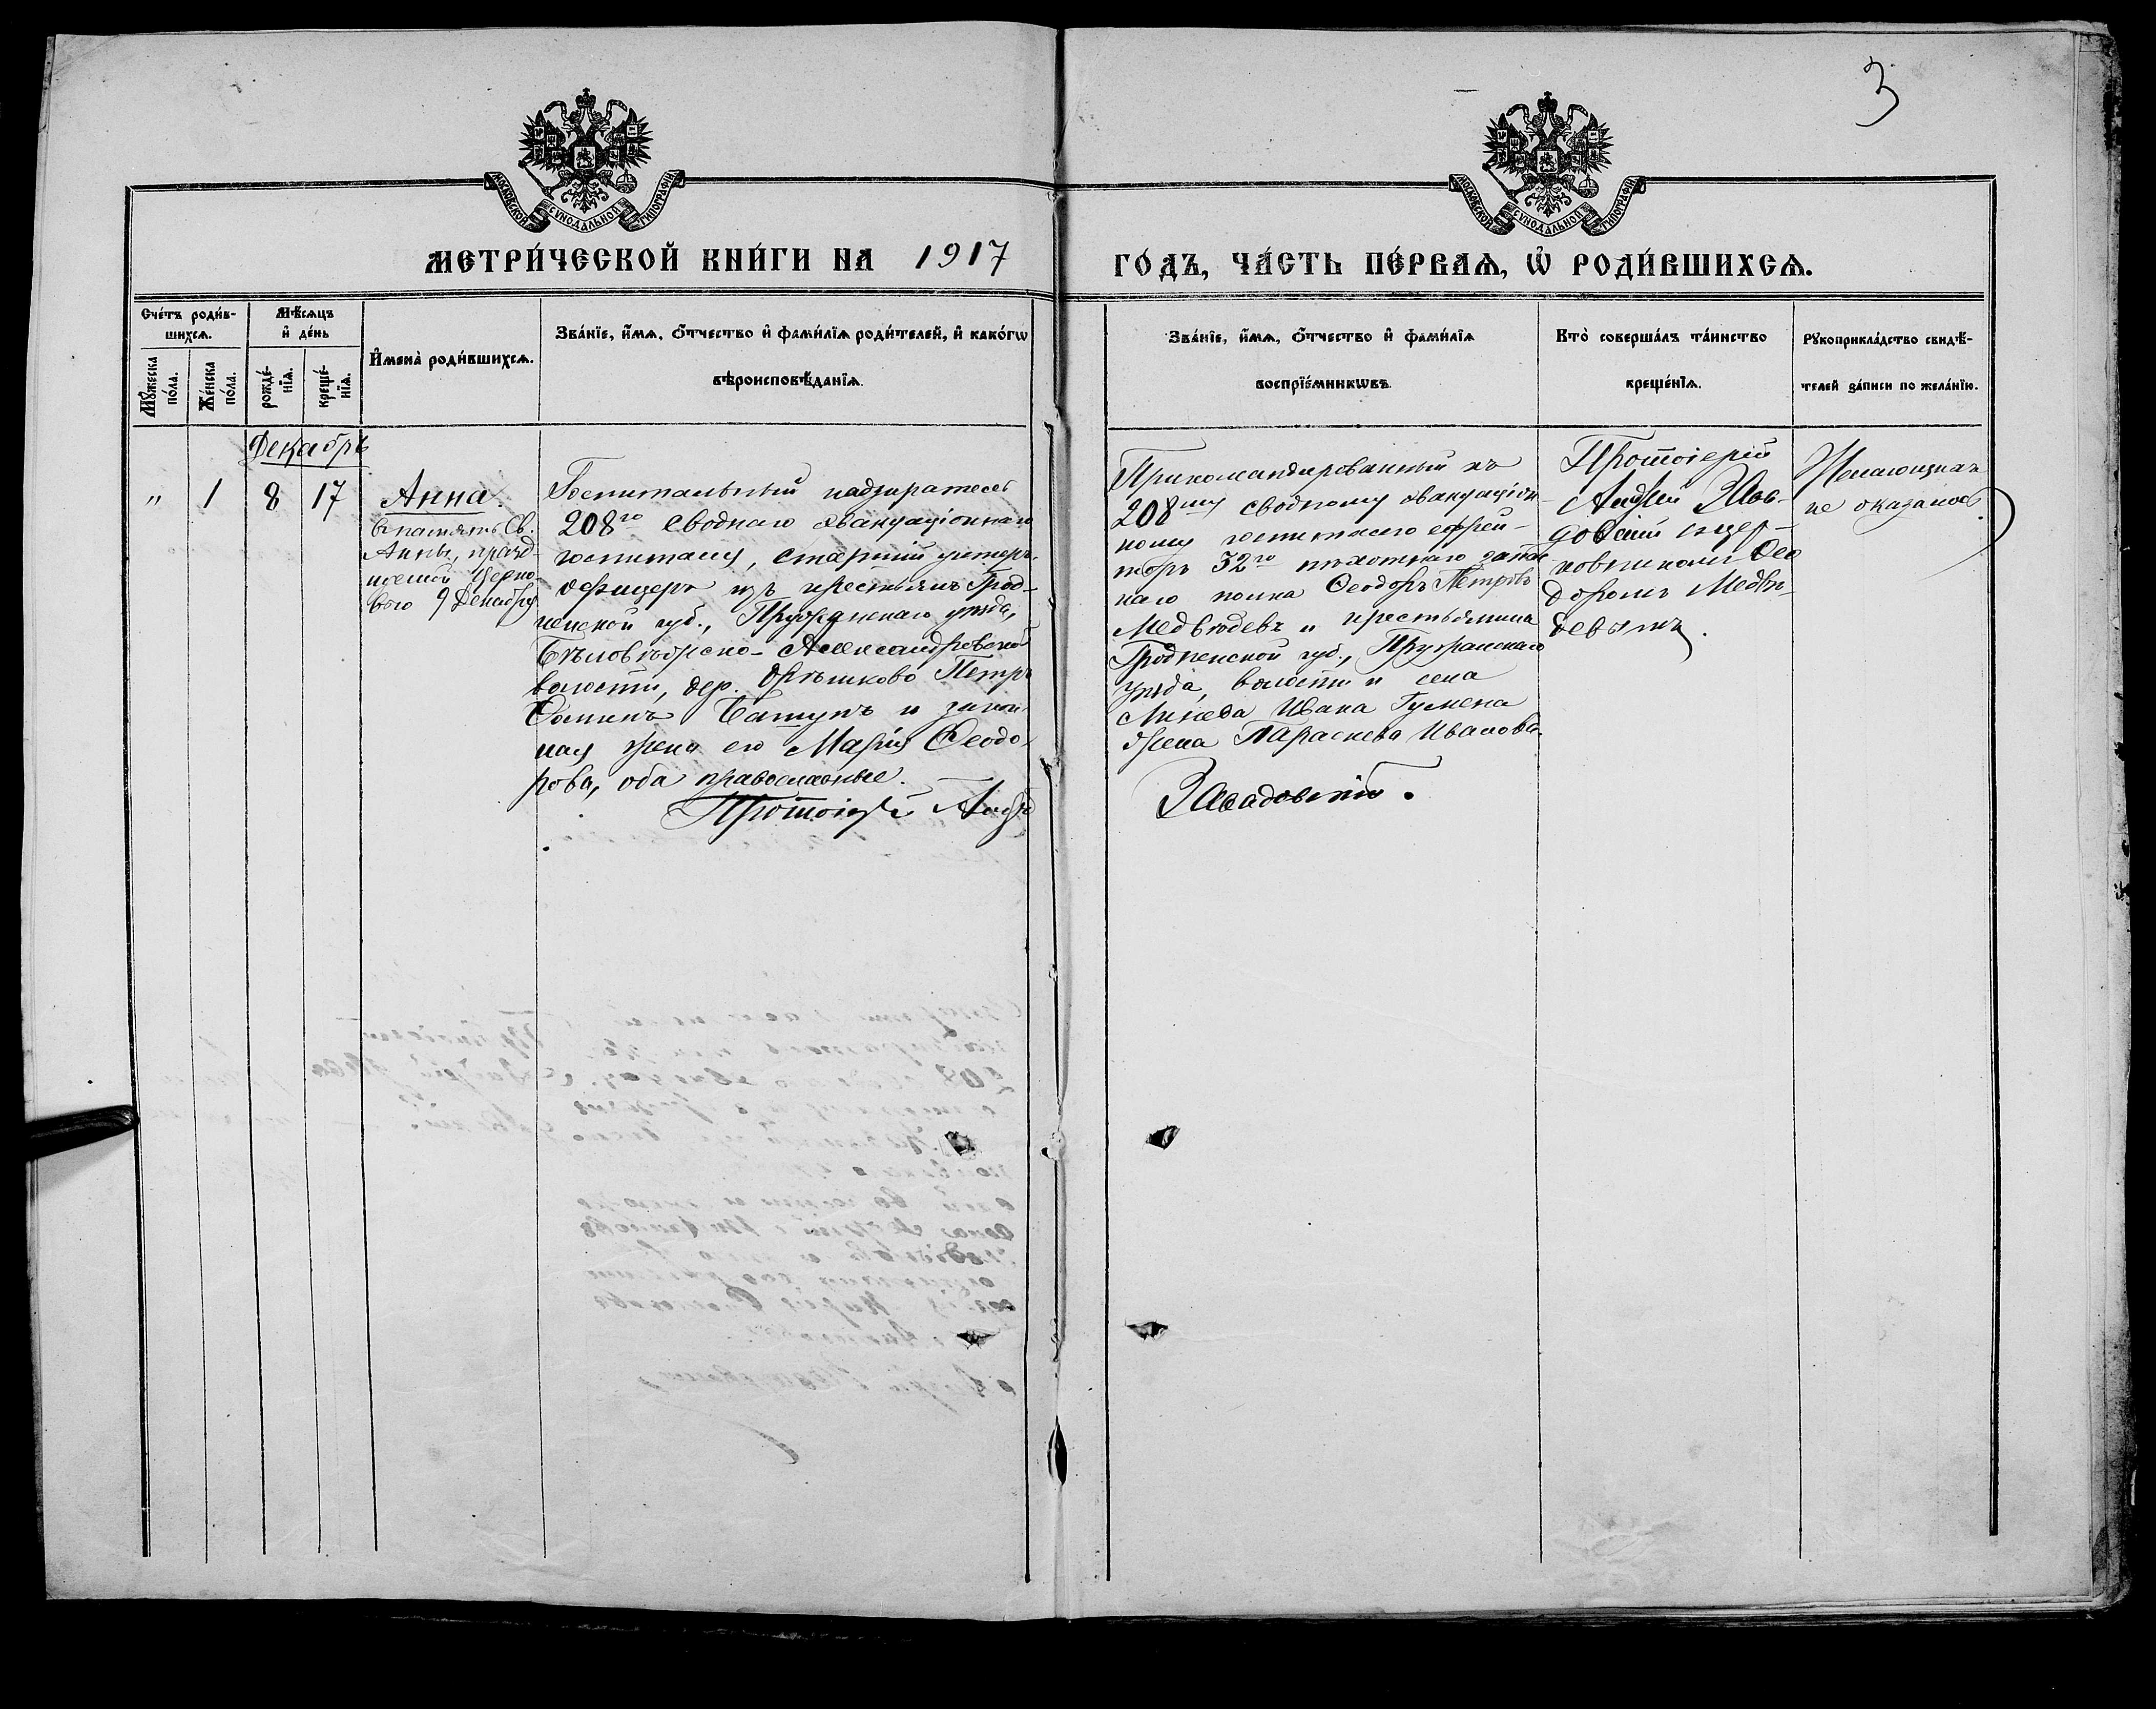 3
МОСКОВСКОЙ СѴНОДАЛЬНОЙ ТИПОГРАФІИ
МОСКОВСКОЙ СѴНОДАЛЬНОЙ ТИПОГРАФІИ
МЕТРИ́ЧЕСКОЙ КНИ́ГИ НА 1917
ГО́ДЪ, ЧА́СТЬ ПЕ́РВАѦ, Ѡ҆ РОДИ́ВШИХСѦ.
Сче́тъ роди́в-
шихсѧ.
Мꙋ́жеска
по́ла.
Же́нска
по́ла.
Мѣ́сѧцъ
и҆ де́нь
рожде́-
нїѧ.
креще́-
нїѧ.
И҆мена̀ роди́вшихсѧ.
Зва́нїе, и҆́мѧ, ѻ҆́тчество и҆ фами́лїѧ роди́телей, и҆ како́гѡ
вѣроисповѣ́данїѧ.
Зва́нїе, и҆́мѧ, ѻ҆́тчество и҆ фами́лїѧ
воспрїе́мникѡвъ.
Кто̀ соверша́лъ та́инство
креще́нїѧ.
Рꙋкоприкла́дство свидѣ́-
телей за́писи по жела́нїю.
Декабрь
" 1 8 17
Анна.
в память Св.
Анны, празд-
нуемой Церко-
вью 9 Декабря
Госпитальный надзиратель
208го Своднаго эвакуаціоннаго
госпиталя, старшій унтеръ-
офицеръ изъ крестьянъ Грод-
ненской губ., Пружанскаго уѣзда,
Бѣловѣжско-Александровской
волости, дер. Петръ
Фоминъ и закон-
ная жена его Марія Ѳеодо-
рова, оба православные.
Протоіерей Андрей
Прикомандированный къ
208му сводному эвакуаціон-
ному госпиталю ефрей-
торъ 32го пѣхотнаго запас
наго полка Ѳеодоръ Петровъ
Медвѣдевъ и крестьянина
Гродненской губ., Пружанскаго
уѣзда, волости и села
Ивана Гумена
жена Параскева Иванова.
Завадовскій.
Протоіерей
Андрей Зава-
довскій съ цер-
ковникомъ Ѳео
доромъ Медвѣ-
девымъ.
Желающихъ
не оказалось.